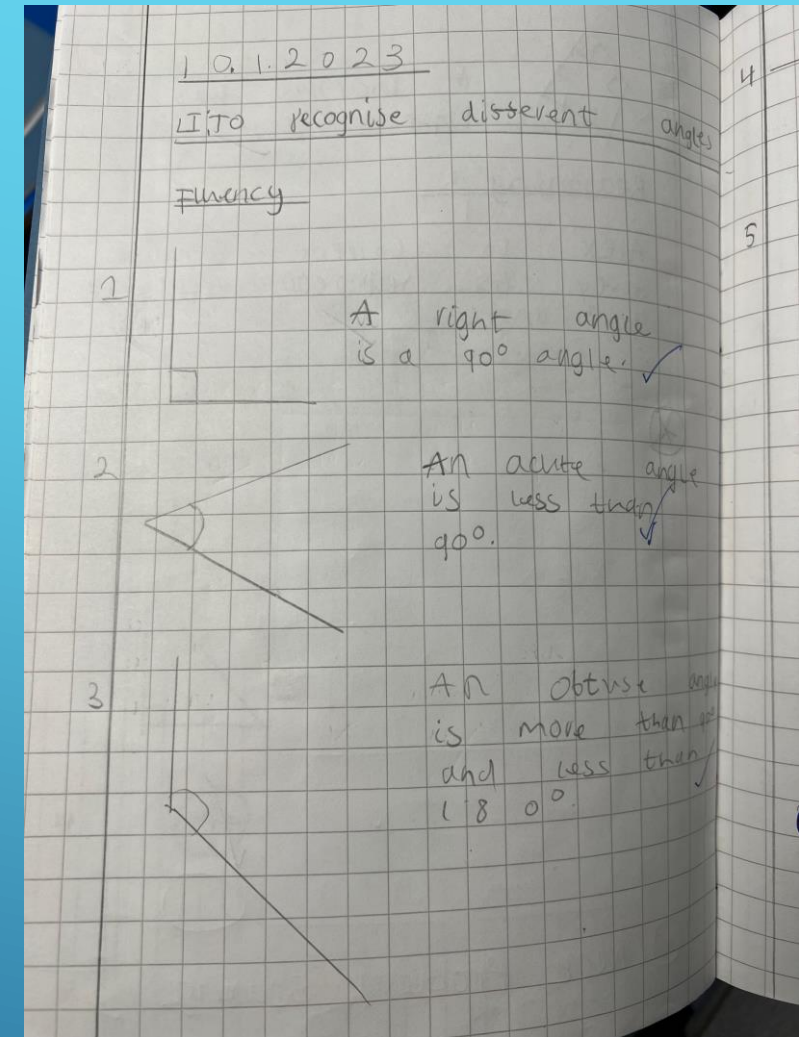 10.1.2023
LI:TO recognise different angles
Fluency
1
A right angle
is a 90° angle.
2
An acute angle
is less than
90°.
3
An obtuse angle
is more than 90°
and less than
180°.
4
5